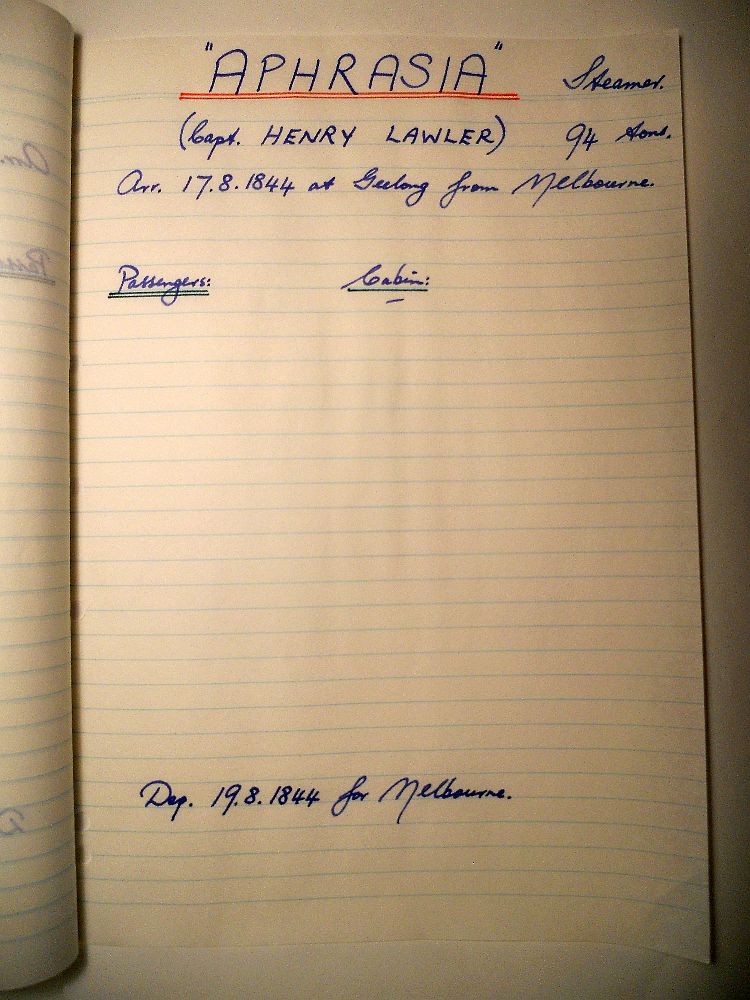 "APHRASIA" Steamer.
(Capt. HENRY LAWLER) 94 tons.
Arr. 17.8.1844 at Geelong from Melbourne.
Passengers: Cabin:
–
Dep. 19.8.1844 for Melbourne.